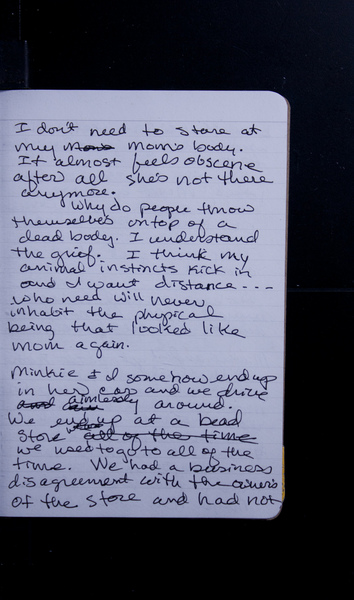 I don't need to stare at
my mom's mom's body.
It almost feels obscene
after all she's not there
anymore.
Why do people throw
themselves on top of a
dead body. I understand
the grief. I think my
animal instincts kick in
and I want distance ----
who need will never
inhabit the physical
being that looked like
mom again.
Minkie & I somehow end up
in her car and we drive
and aimlessly around.
We end up at a bead
store where all of the time
we used to go to all of the
time. We had a business
disagreement with the owners
of the store and had not